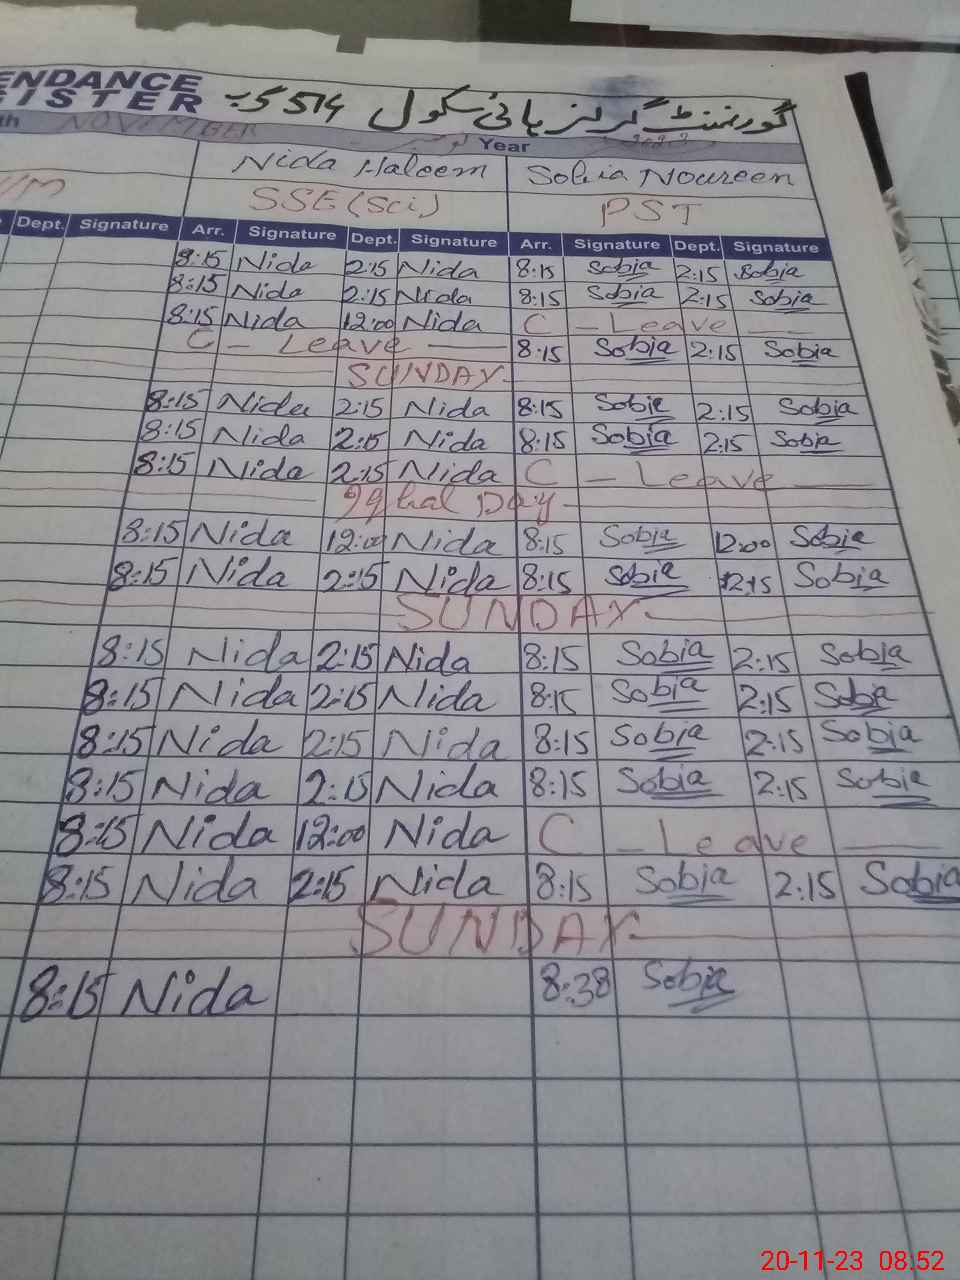 ENDANCE
ISTER گورنمنٹ گرلز ہائی سکول 514 گ ب
th NOVEMBER نومبر Year 2023
Nida Haleem Sobia Noureen
SSE (Sci) PST
Dept. Signature Arr. Signature Dept. Signature Arr. Signature Dept. Signature
8:15 Nida 2:15 Nida 8:15 Sobia 2:15 Sobia
8:15 Nida 2:15 Nida 8:15 Sobia 2:15 Sobia
8:15 Nida 12:00 Nida C - Leave
C - Leave 8:15 Sobia 2:15 Sobia
SUNDAY
8:15 Nida 2:15 Nida 8:15 Sobia 2:15 Sobia
8:15 Nida 2:15 Nida 8:15 Sobia 2:15 Sobia
8:15 Nida 2:15 Nida C - Leave
Iqbal Day
8:15 Nida 12:00 Nida 8:15 Sobia 12:00 Sobia
8:15 Nida 2:15 Nida 8:15 Sobia 2:15 Sobia
SUNDAY
8:15 Nida 2:15 Nida 8:15 Sobia 2:15 Sobia
8:15 Nida 2:15 Nida 8:15 Sobia 2:15 Sobia
8:15 Nida 2:15 Nida 8:15 Sobia 2:15 Sobia
8:15 Nida 2:15 Nida 8:15 Sobia 2:15 Sobia
8:15 Nida 12:00 Nida C - Leave
8:15 Nida 2:15 Nida 8:15 Sobia 2:15 Sobia
SUNDAY
8:15 Nida 8:38 Sobia
20-11-23 08:52